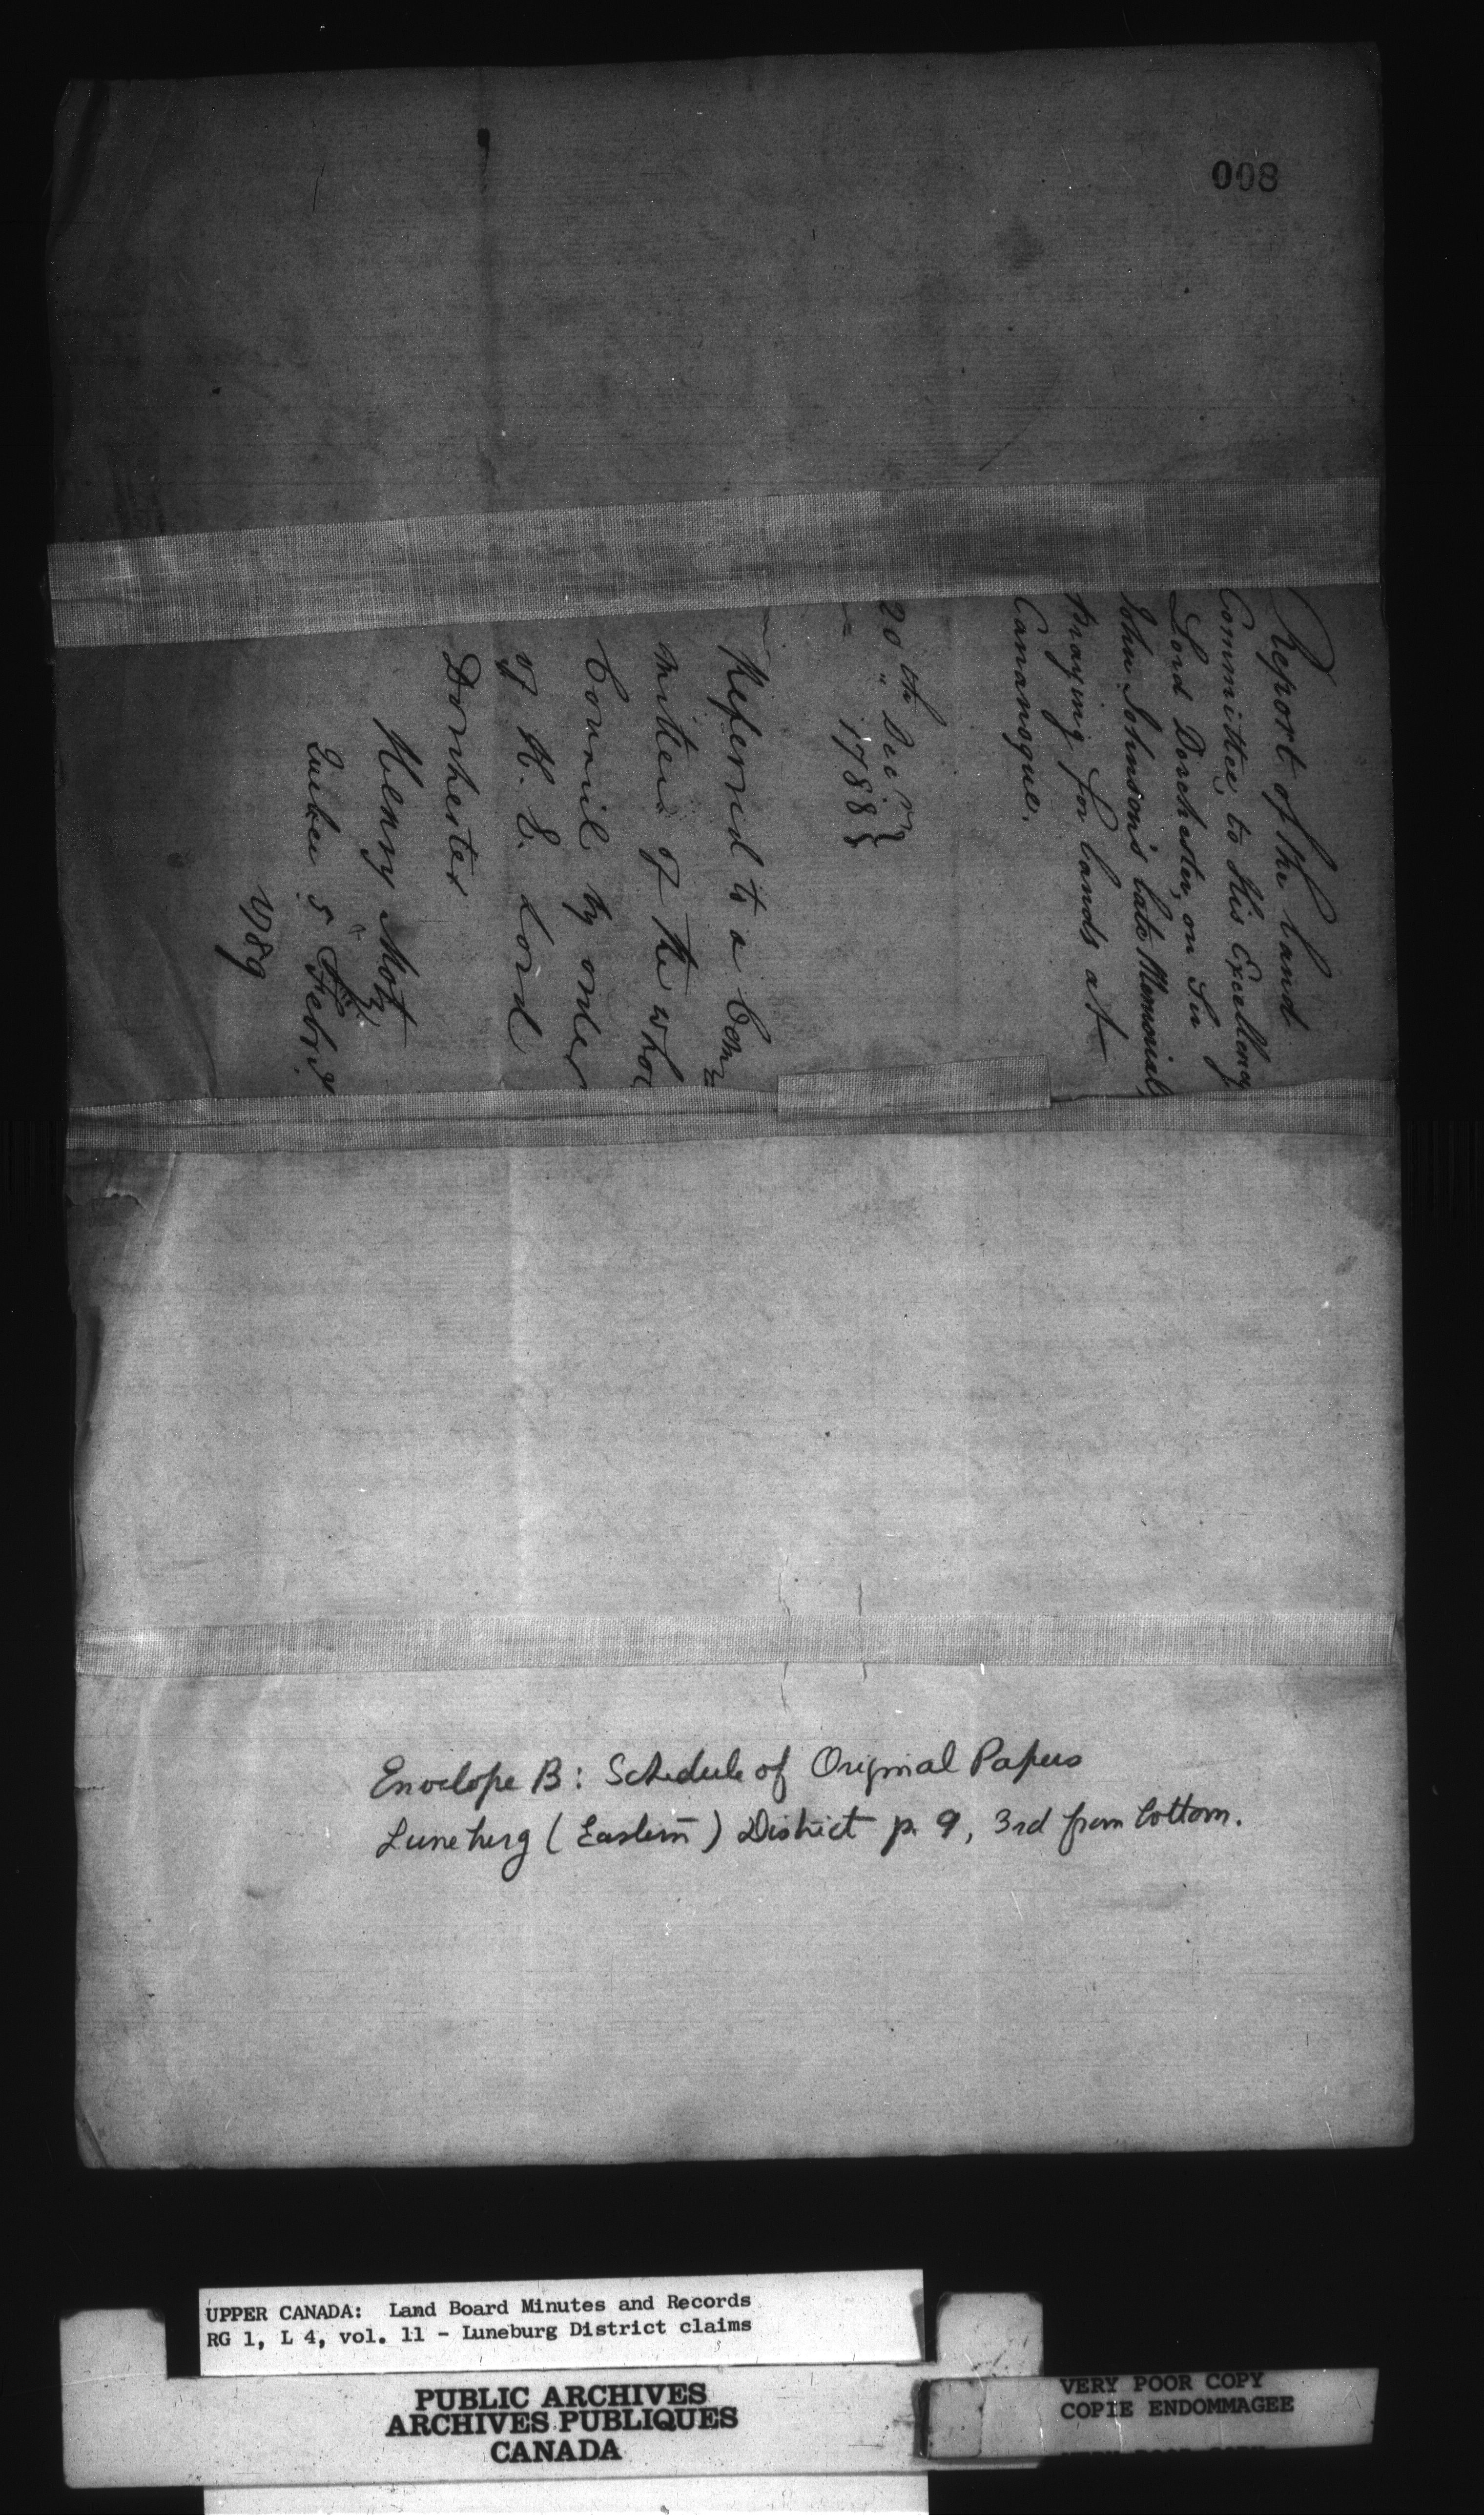 008
Report of the Land
Committee, to His Excellency
Lord Dorchester, on Sir
John Johnson's late Memorial,
praying for Lands at
Cananogue.
20th Decr }
1788 }
Referred to a Com
mittee of the whole
Council by order
of H. E. Lord
Dorchester
Henry Motz
Quebec 5 Febry
1789
Envelope B: Schedule of Original Papers
Luneburg (Eastern) District p. 9, 3rd from bottom.
UPPER CANADA: Land Board Minutes and Records
RG 1, L 4, vol. 11 - Luneburg District claims
PUBLIC ARCHIVES
ARCHIVES PUBLIQUES
CANADA
VERY POOR COPY
COPIE ENDOMMAGEE